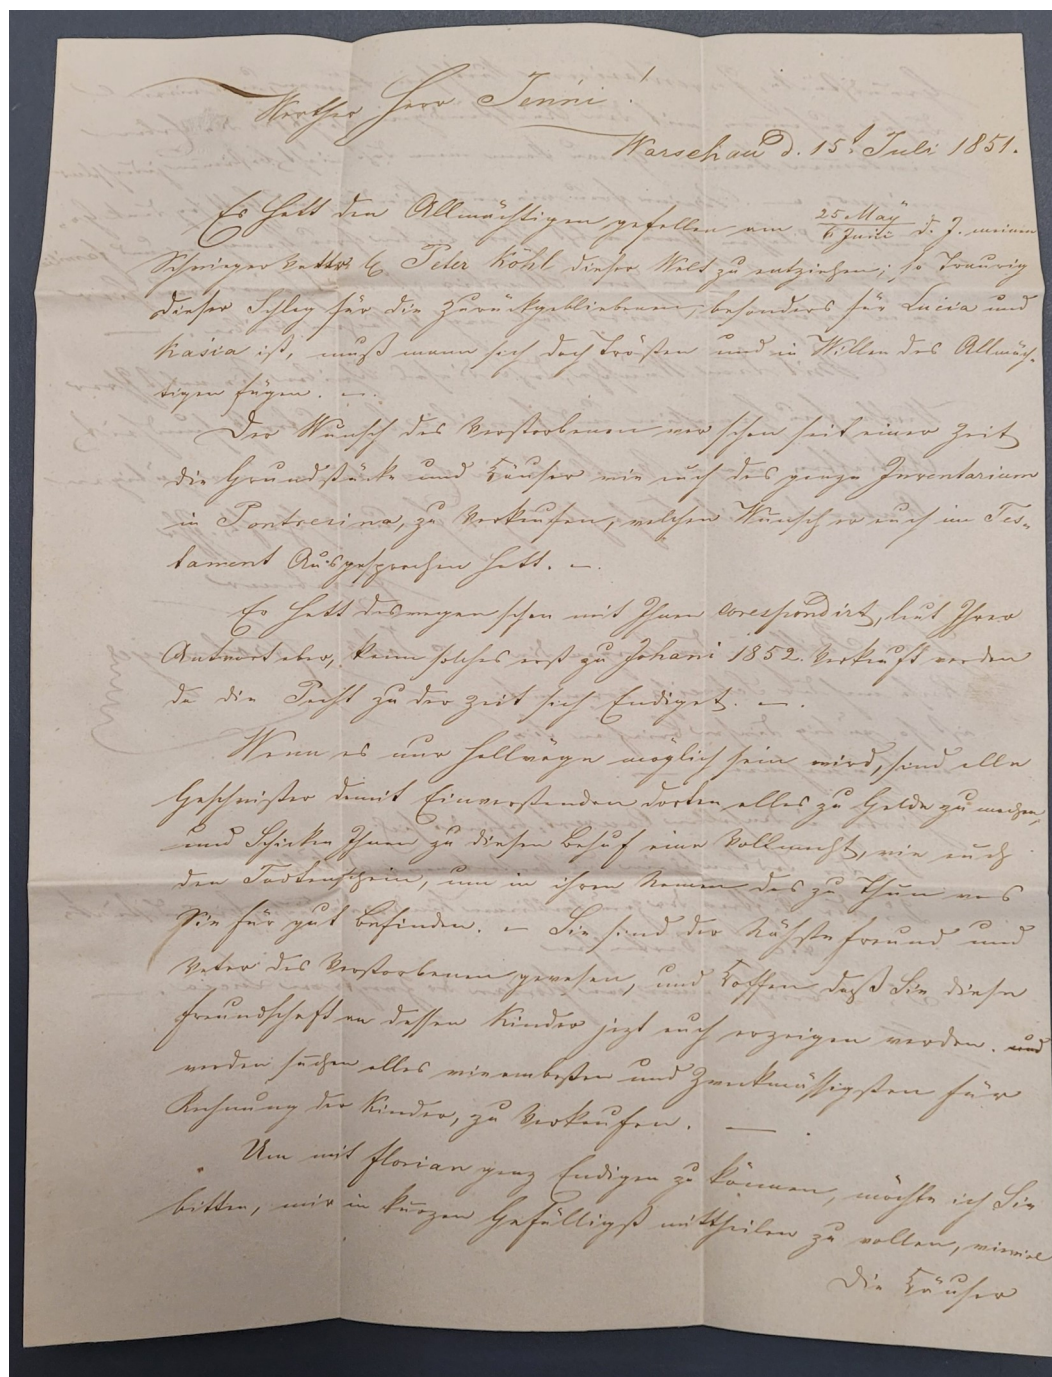 Werther Herr Jenni!
Warschau d. 15t Juli 1851.
Es hatt den Allmächtigen gefallen am 25 May / 6 Juni d. J. meinen
Schwieger Peter Köhl dieser Welt zu entziehen; so Traurig
dieser Schlag für die zurückgebliebenen, besonders für Lucia und
Kasia ist, muß mann sich doch Trösten und in Willen des Allmäch-
tigen fügen. —.
Der Wunsch des Verstorbenen war schon seit einer Zeit
die Grundstücke und Häuser wie auch das ganze Inventarium
in Pontresina, zu Verkaufen, welchen Wunsch er auch im Tes-
tament Ausgesprochen hatt. —.
Er hatt deswegen schon mit Ihnen correspondirt, laut Ihrer
Antwort aber, kann solches erst zu Johani 1852. Verkauft werden
da die Pacht zu der Zeit sich Endiget. —.
Wenn es nur hallwäge möglich sein wird, sind alle
Geschwister damit Einverstanden dorten alles zu Gelde zu machen,
und Schicken Ihnen zu diesen Behuf eine Vollmacht, wie auch
den Todtenschein, um in ihren Namen das zu Thun was
Sie für gut Befinden. — Sie sind der Nähste freund und
Vater des Verstorbenen gewesen, und Hoffen daß Sie diese
freundschaft an dessen Kinder jezt auch erzeigen werden. und
werden suchen alles wie am besten und Zweckmässigsten für
Rechnung der Kinder, zu Verkaufen. —
Um mit florian ganz Endigen zu können, möchte ich Sie
bitten, mir in kurzen Gefälligst mittheilen zu wollen, wieviel
die Häuser